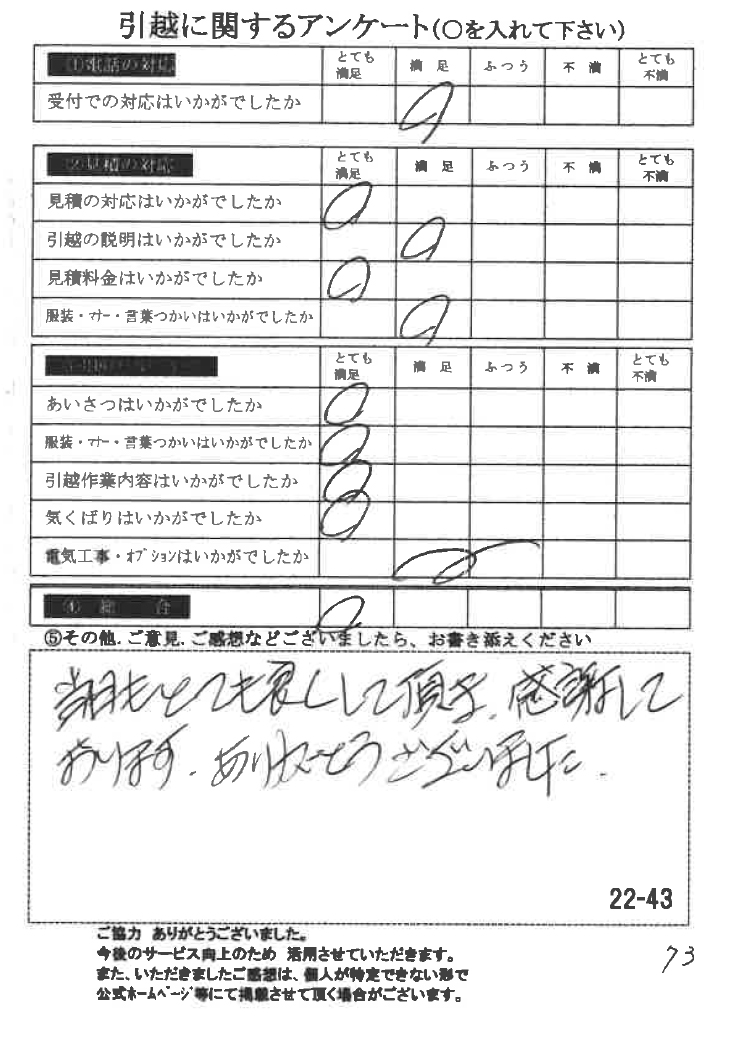 引越に関するアンケート(○を入れて下さい)
①電話の対応 とても満足 満足 ふつう 不満 とても不満
受付での対応はいかがでしたか
②見積の対応 とても満足 満足 ふつう 不満 とても不満
見積の対応はいかがでしたか
引越の説明はいかがでしたか
見積料金はいかがでしたか
服装・マナー・言葉つかいはいかがでしたか
とても満足 満足 ふつう 不満 とても不満
あいさつはいかがでしたか
服装・マナー・言葉つかいはいかがでしたか
引越作業内容はいかがでしたか
気くばりはいかがでしたか
電気工事・オプションはいかがでしたか
④総合
⑤その他.ご意見.ご感想などございましたら、お書き添えください
当日もとても良くして頂き、感謝して
おります。ありがとうございました。
22-43
ご協力 ありがとうございました。
今後のサービス向上のため 活用させていただきます。
また、いただきましたご感想は、個人が特定できない形で
公式ホームページ等にて掲載させて頂く場合がございます。
73